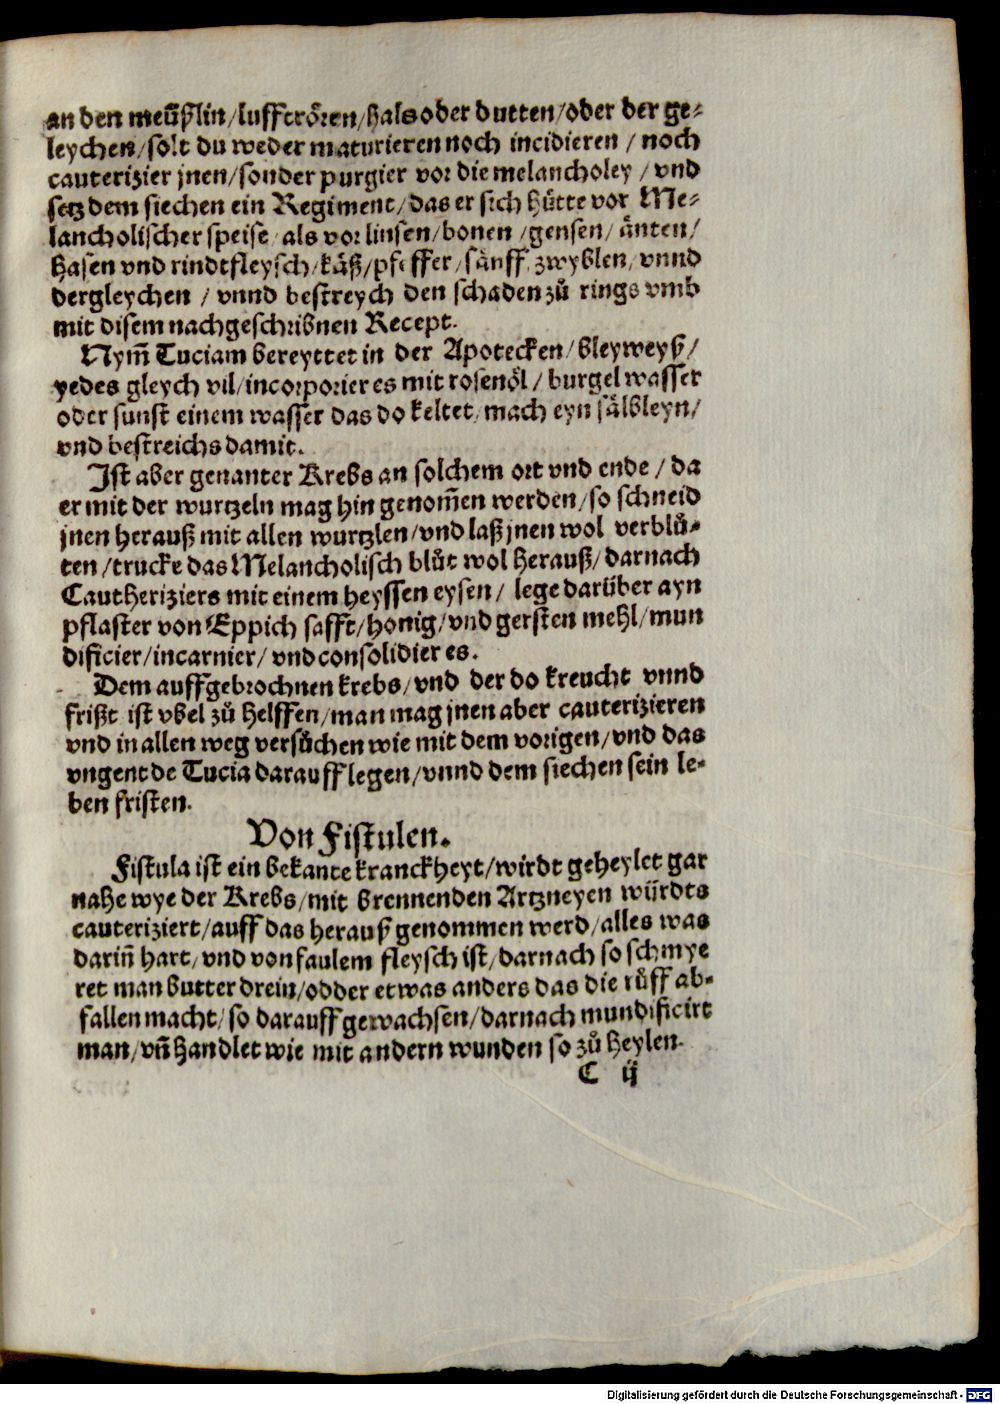 an den meüßlin/lufftrören/hals oder dutten/oder der ge⸗
leychen/solt du weder maturieren noch incidieren / noch
cauterizier jnen/sonder purgier vor die melancholey / vnd
setz dem siechen ein Regiment/das er sich hütte vor Me⸗
lancholischer speise/als vor linsen/bonen /gensen/ änten/
hasen vnd rindtfleysch/käß/pfeffer/sänff, zwyblen, vnnd
dergleychen / vnnd bestreych den schaden zů rings vmb
mit disem nachgeschribnen Recept.
Nym̃ Tuciam bereyttet in der Apotecken/bleyweyß/
yedes gleych vil/incorporier es mit rosenöl / burgel wasser
oder sunst einem wasser das do keltet/mach eyn sälbleyn/
vnd bestreichs damit.
Ist aber genanter Krebs an solchem ort vnd ende / da
er mit der wurtzeln mag hin genom̃en werden/so schneid
jnen herauß mit allen wurtzlen/vnd laß jnen wol verblů⸗
ten /trucke das Melancholisch blůt wol herauß/darnach
Cautheriziers mit einem heyssen eysen/ lege darüber ayn
pflaster von Eppich safft/honig/vnd gersten mehl/mun
dificier/incarnier/ vnd consolidier es.
Dem auffgebrochnen krebs/vnd der do kreucht vnnd
frißt ist vbel zů helffen/man mag jnen aber cauterizieren
vnd in allen weg versůchen wie mit dem vorigen/vnd das
vngent de Tucia darauff legen/vnnd dem siechen sein le⸗
ben fristen.
Von Fistulen.
Fistula ist ein bekante kranckheyt/wirdt geheylet gar
nahe wye der Krebs/mit brennenden Artzneyen würdts
cauteriziert/auff das herauß genommen werd/alles was
dariñ hart/vnd von faulem fleysch ist/darnach so schmye
ret man butter drein/odder etwas anders das die růff ab⸗
fallen macht/so darauff gewachsen/darnach mundificirt
man/vñ handlet wie mit andern wunden so zů heylen.
C ij
Digitalisierung gefördert durch die Deutsche Forschungsgemeinschaft - DFG